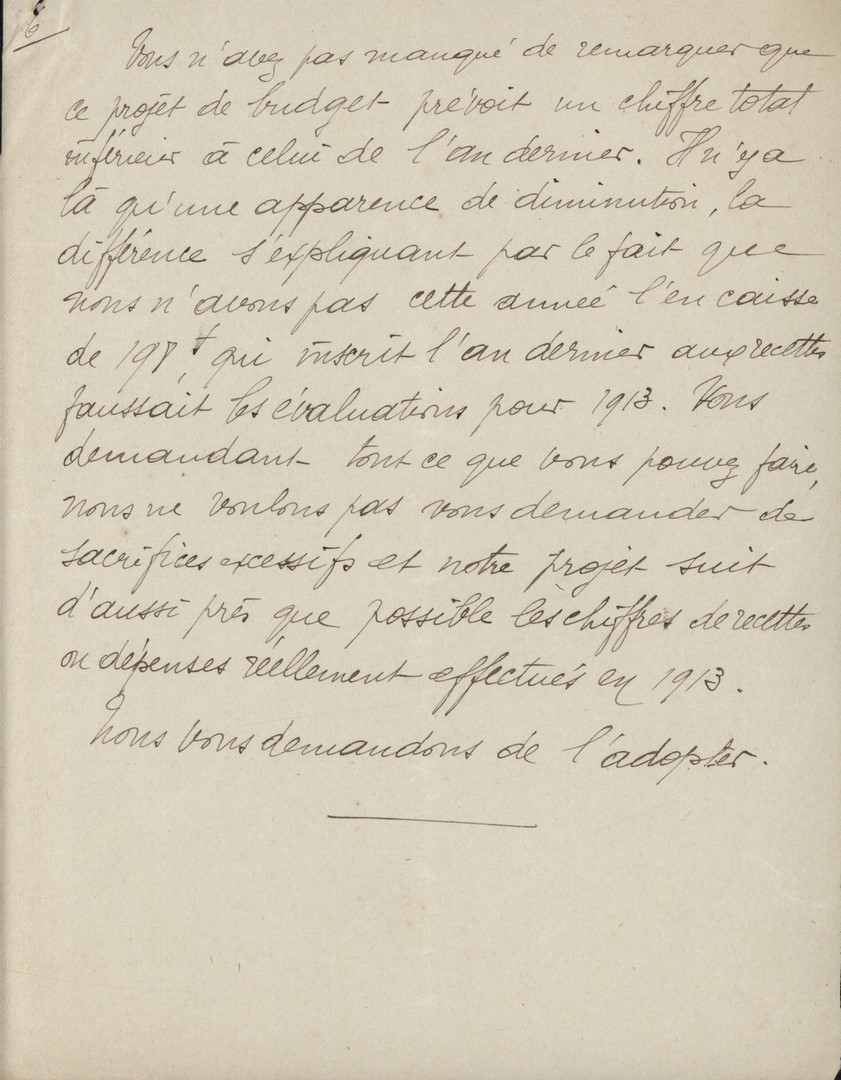 6
Vous n'avez pas manqué de remarquer que
ce projet de budget prévoit un chiffre total
inférieur à celui de l'an dernier. Il n'y a
là qu'une apparence de diminution, la
différence s'expliquant par le fait que
nous n'avons pas cette année l'encaisse
de 198 f, qui inscrit l'an dernier aux recettes
faussait les évaluations pour 1913. Vous
demandant tout ce que vous pouvez faire,
nous ne voulons pas vous demander de
sacrifices excessifs et notre projet suit
d'aussi près que possible les chiffres de recettes
ou dépenses réellement effectués en 1913.
Nous vous demandons de l'adopter.